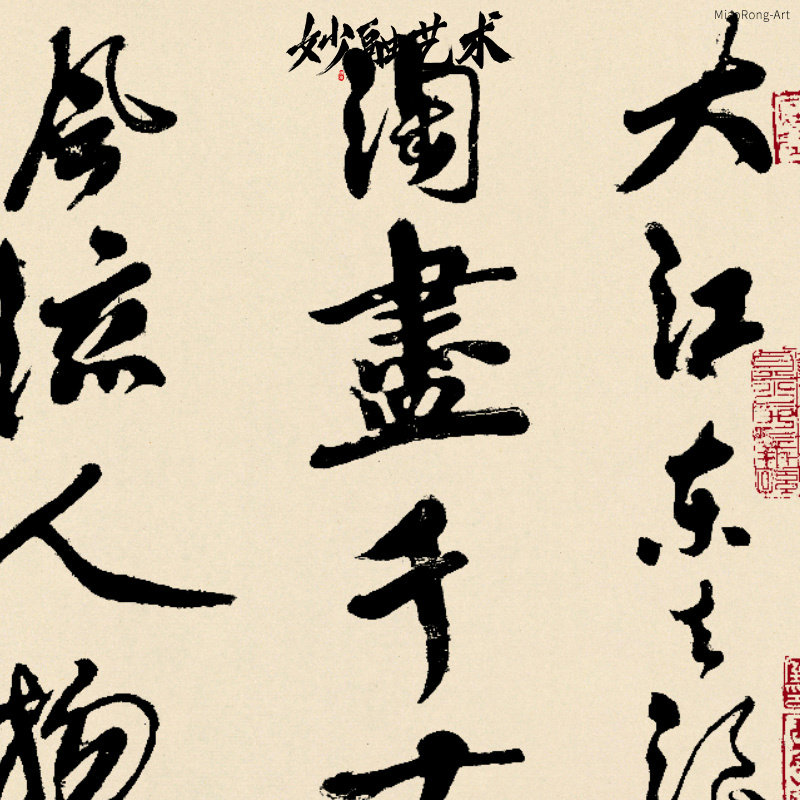 MiaoRong-Art
妙融艺术
大江东去浪
淘盡千
風流人物